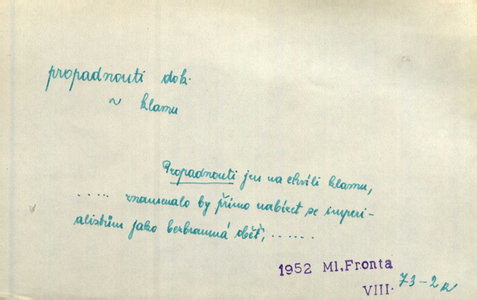 propadnouti dok.
~ klamu
Propadnouti jen na chvíli klamu,
..... znamenalo by přímo nabízet se imperi-
alistům jako bezbranná oběť, ......
1952 Ml. Fronta
VIII. 73-2